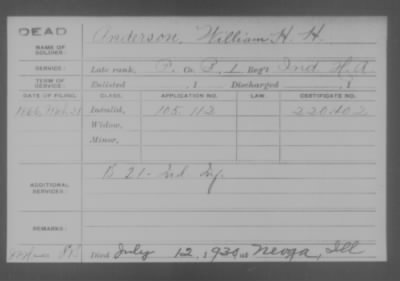 DEAD
NAME OF SOLDIER: Anderson, William H. H.
SERVICE: Late rank, P. Co. B, 1 Reg't Ind H.A
TERM OF SERVICE: Enlisted , 1 Discharged , 1
DATE OF FILING. CLASS. APPLICATION NO. LAW. CERTIFICATE NO.
1866 Feb 21 Invalid, 105.112 220.402
Widow,
Minor,
ADDITIONAL SERVICES: B 21 - Ind Inf.
REMARKS:
Died July 12, 1930 at Neoga, Ill